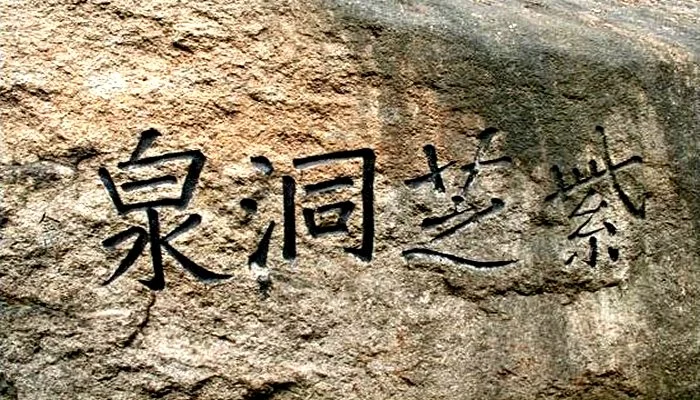 紫芝洞泉